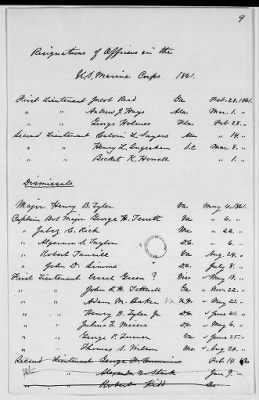 9
Resignations of Officers in the
U.S. Marine Corps 1861.
First Lieutenant Jacob Read Ga Feb. 28, 1861.
" " Andrew J. Hays Ala Mar. 1. "
" " George Holmes Feb 28. "
Second Lieutenant Calvin L. Sayers Ala " 14. "
" " Henry L. Ingraham S.C. Mar. 8. "
" " Becket K. Howell " 1. "
Dismissals
Major Henry B. Tyler Va May 4, 1861.
Captain Bvt Major George H. Terrett Va " 6. "
" Jabez C. Rich Me " 22. "
" Algernon S. Taylor " 6. "
" Robert Tansill Va Aug. 24. "
" John D. Simms July 8. "
First Lieutenant Israel Green ? " May 18. "
" " John R. F. Tattnall Ga " Nov. 22. "
" " Adam N. Baker " May 22. "
" " Henry B. Tyler Jr " June 21. "
" " Julius E. Meiere " May 6. "
" " George P. Turner Va " June 25. "
" " Thomas S. Wilson Mo " Aug 20. "
Second Lieutenant George Feb 14
" " Alexander W. Stark Jan 9. "
" " Robert Kidd